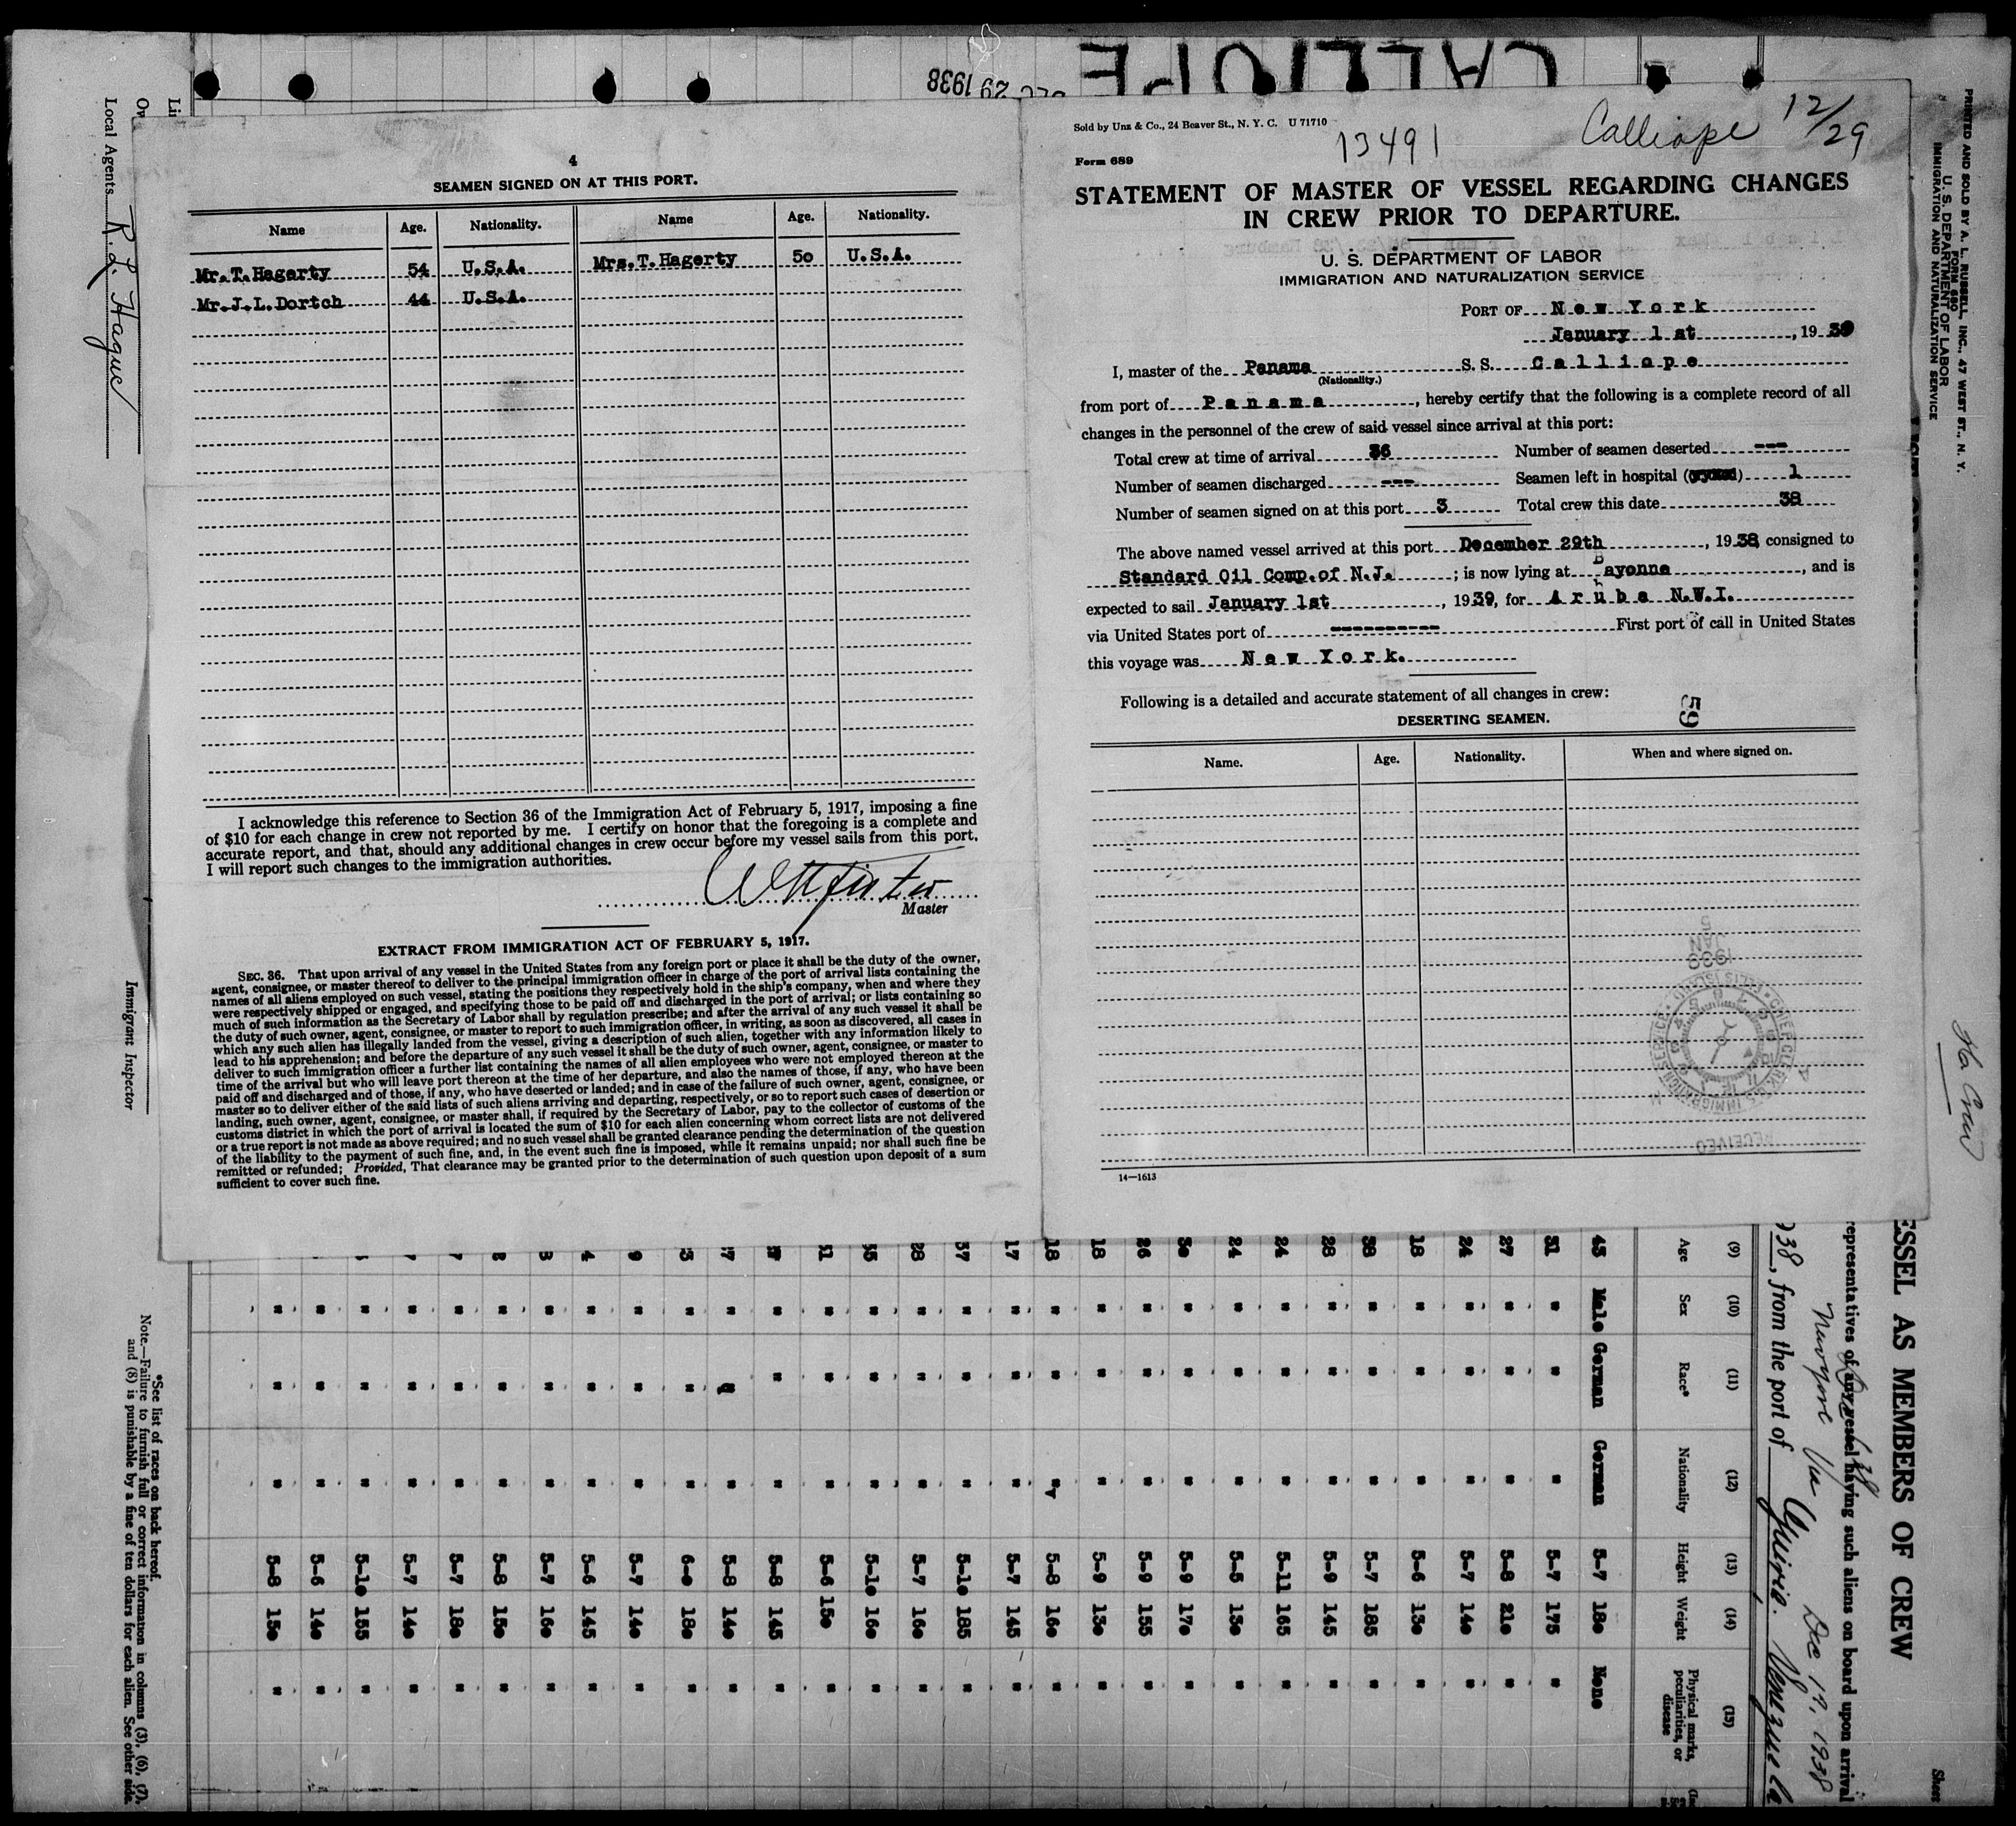 CALLIOPE
DEC 29 1938
4
SEAMEN SIGNED ON AT THIS PORT.
Name Age. Nationality. Name Age. Nationality.
Mr.T.Hagarty 54 U.S.A. Mrs.T.Hagerty 50 U.S.A.
Mr.J.L.Dortch 44 U.S.A.
I acknowledge this reference to Section 36 of the Immigration Act of February 5, 1917, imposing a fine
of $10 for each change in crew not reported by me. I certify on honor that the foregoing is a complete and
accurate report, and that, should any additional changes in crew occur before my vessel sails from this port,
I will report such changes to the immigration authorities.
Master
EXTRACT FROM IMMIGRATION ACT OF FEBRUARY 5, 1917.
SEC. 36. That upon arrival of any vessel in the United States from any foreign port or place it shall be the duty of the owner,
agent, consignee, or master thereof to deliver to the principal immigration officer in charge of the port of arrival lists containing the
names of all aliens employed on such vessel, stating the positions they respectively hold in the ship's company, when and where they
were respectively shipped or engaged, and specifying those to be paid off and discharged in the port of arrival; or lists containing so
much of such information as the Secretary of Labor shall by regulation prescribe; and after the arrival of any such vessel it shall be
the duty of such owner, agent, consignee, or master to report to such immigration officer, in writing, as soon as discovered, all cases in
which any such alien has illegally landed from the vessel, giving a description of such alien, together with any information likely to
lead to his apprehension; and before the departure of any such vessel it shall be the duty of such owner, agent, consignee, or master to
deliver to such immigration officer a further list containing the names of all alien employees who were not employed thereon at the
time of the arrival but who will leave port thereon at the time of her departure, and also the names of those, if any, who have been
paid off and discharged and of those, if any, who have deserted or landed; and in case of the failure of such owner, agent, consignee, or
master so to deliver either of the said lists of such aliens arriving and departing, respectively, or so to report such cases of desertion or
landing, such owner, agent, consignee, or master shall, if required by the Secretary of Labor, pay to the collector of customs of the
customs district in which the port of arrival is located the sum of $10 for each alien concerning whom correct lists are not delivered
or a true report is not made as above required; and no such vessel shall be granted clearance pending the determination of the question
of the liability to the payment of such fine, and, in the event such fine is imposed, while it remains unpaid; nor shall such fine be
remitted or refunded; Provided, That clearance may be granted prior to the determination of such question upon deposit of a sum
sufficient to cover such fine.
Sold by Unz & Co., 24 Beaver St., N. Y. C. U 71710
13491
Calliope 12/29
Form 689
STATEMENT OF MASTER OF VESSEL REGARDING CHANGES
IN CREW PRIOR TO DEPARTURE.
U. S. DEPARTMENT OF LABOR
IMMIGRATION AND NATURALIZATION SERVICE
PORT OF New York
January 1st, 1939
I, master of the Panama S. S. Calliope
(Nationality.)
from port of Panama, hereby certify that the following is a complete record of all
changes in the personnel of the crew of said vessel since arrival at this port:
Total crew at time of arrival 36 Number of seamen deserted ---
Number of seamen discharged --- Seamen left in hospital ( ) 1
Number of seamen signed on at this port 3 Total crew this date 38
The above named vessel arrived at this port December 29th, 1938, consigned to
Standard Oil Comp.of N.J.; is now lying at Bayonne, and is
expected to sail January 1st, 1939, for Aruba N.W.I.
via United States port of ---------- First port of call in United States
this voyage was New York.
Following is a detailed and accurate statement of all changes in crew:
59
DESERTING SEAMEN.
Name. Age. Nationality. When and where signed on.
1939
JAN
5
RECEIVED
14—1613
Local Agents R. L. Hague
Immigrant Inspector
*See list of races on back hereof.
Note.—Failure to furnish full or correct information in columns (3), (6), (7),
and (8) is punishable by a fine of ten dollars for each alien. See other side.
PRINTED AND SOLD BY A. L. RUSSELL, INC., 47 WEST ST., N. Y.
FORM 680
U. S. DEPARTMENT OF LABOR
IMMIGRATION AND NATURALIZATION SERVICE
Sheet
ESSEL AS MEMBERS OF CREW
representatives of any vessel having such aliens on board upon arrival
Dec 19, 1938
938, from the port of Guiria. Venezuela
(9) (10) (11) (12) (13) (14) (15)
Age Sex Race* Nationality Height Weight Physical marks, peculiarities, or disease
45 Male German German 5-7 180 None
31 " " " 5-7 175 "
27 " " " 5-8 210 "
24 " " " 5-7 140 "
18 " " " 5-6 130 "
38 " " " 5-7 185 "
28 " " " 5-9 145 "
24 " " " 5-11 165 "
24 " " " 5-5 130 "
30 " " " 5-9 170 "
26 " " " 5-9 155 "
18 " " " 5-9 130 "
18 " " " 5-8 160 "
17 " " " 5-7 145 "
37 " " " 5-10 185 "
28 " " " 5-7 160 "
35 " " " 5-10 160 "
31 " " " 5-6 150 "
" " " 5-8 145 "
" " " 5-8 140 "
" " " 6-0 180 "
" " " 5-7 140 "
" " " 5-6 145 "
" " " 5-7 160 "
" " " 5-8 150 "
" " " 5-7 180 "
" " " 5-7 140 "
" " " 5-10 155 "
" " " 5-6 140 "
" " " 5-8 150 "